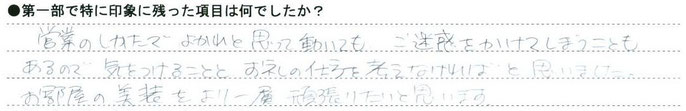 ●第一部で特に印象に残った項目は何でしたか？
営業のしかたで よかれと思って動いても、ご迷惑をかけてしまうことも
あるので 気をつけることと お礼の仕方を考えなければと思いました。
お部屋の美装をより一層頑張りたいと思います